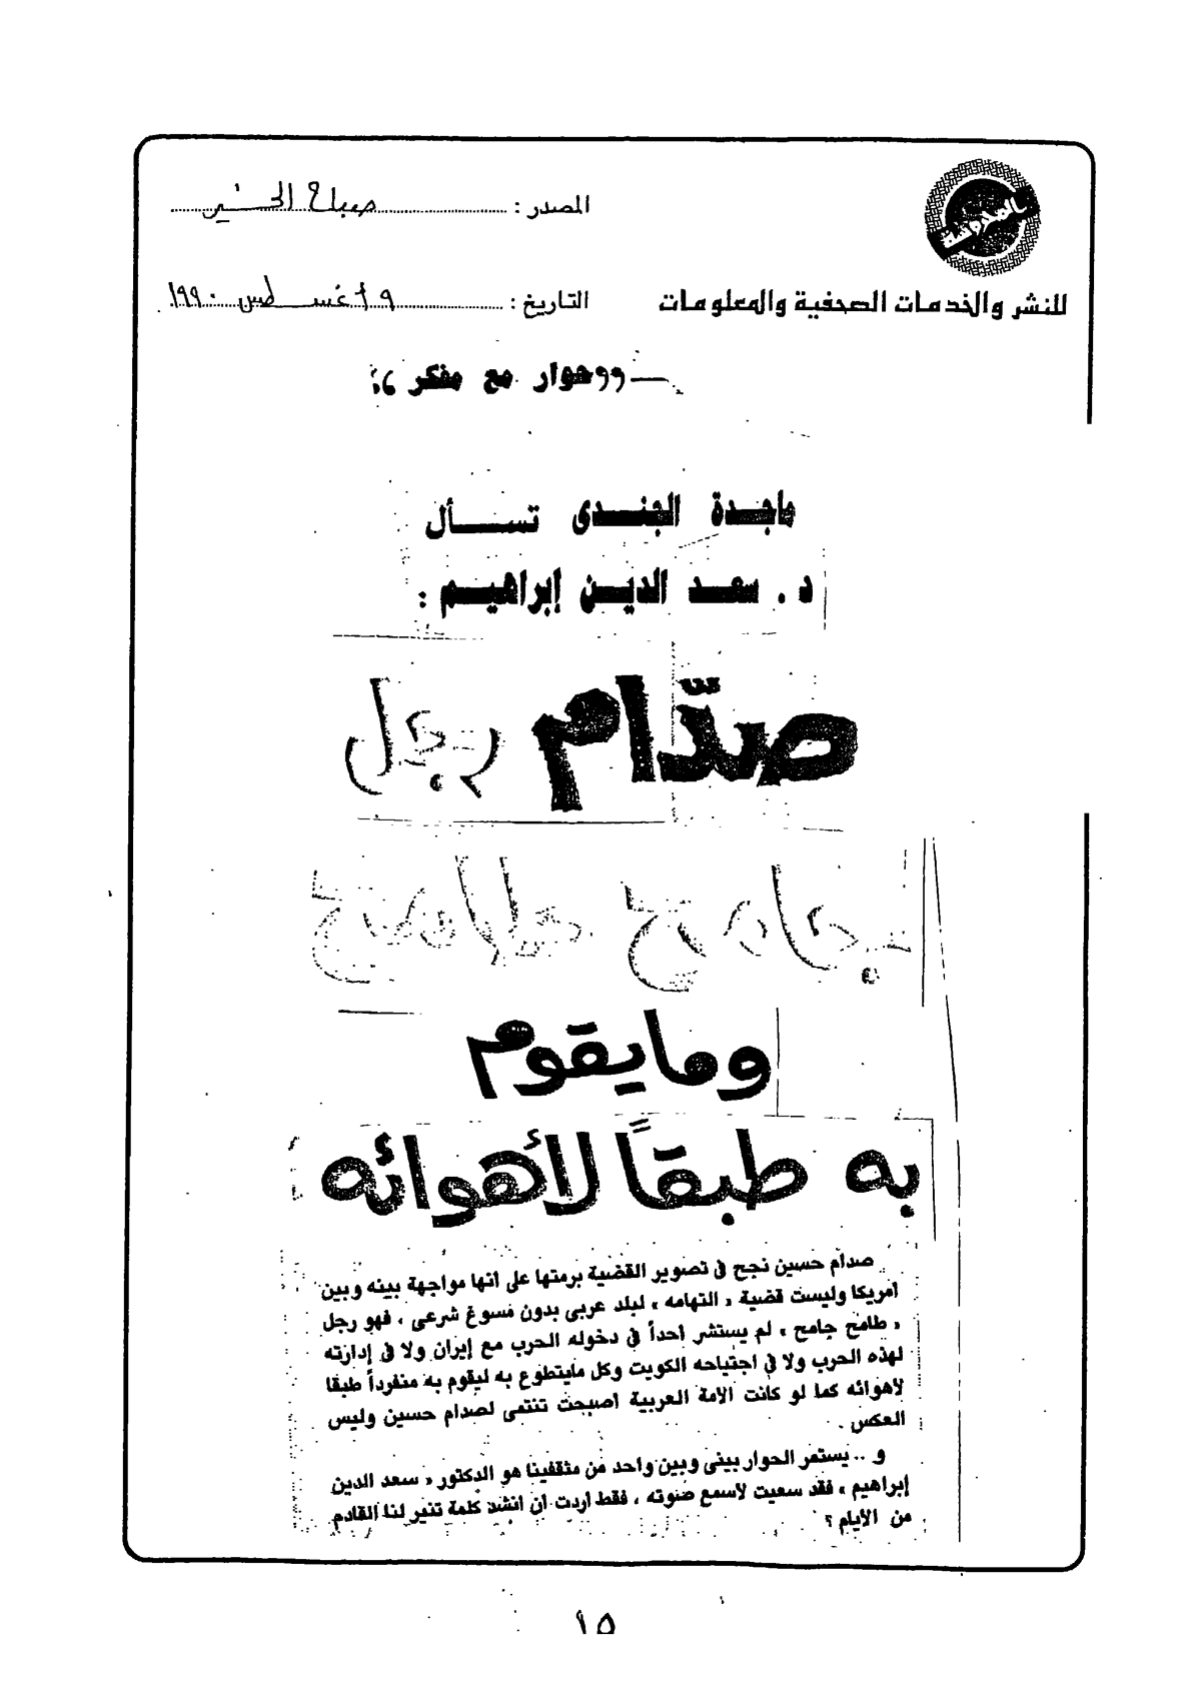 المصدر : صباح الخير
المحروسة
للنشر والخدمات الصحفية والمعلومات
التاريخ : ٩ أغسطس ١٩٩٠
" حوار مع مفكر "
ماجدة الجندى تسأل
د . سعد الدين إبراهيم :
صدّام رجل
جامح طامح
وما يقوم
به طبقاً لأهوائه
صدام حسين نجح فى تصوير القضية برمتها على انها مواجهة بينه وبين
امريكا وليست قضية « التهامه » لبلد عربى بدون مسوغ شرعى ، فهو رجل
« طامح جامح » لم يستشر احداً فى دخوله الحرب مع إيران ولا فى إدارته
لهذه الحرب ولا فى اجتياحه الكويت وكل مايتطوع به ليقوم به منفرداً طبقا
لأهوائه كما لو كانت الامة العربية اصبحت تنتمى لصدام حسين وليس
العكس .
و .. يستمر الحوار بينى وبين واحد من مثقفينا هو الدكتور « سعد الدين
إبراهيم » فقد سعيت لأسمع صوته ، فقط أردت ان انشد كلمة تنير لنا القادم
من الأيام ؟
١٥